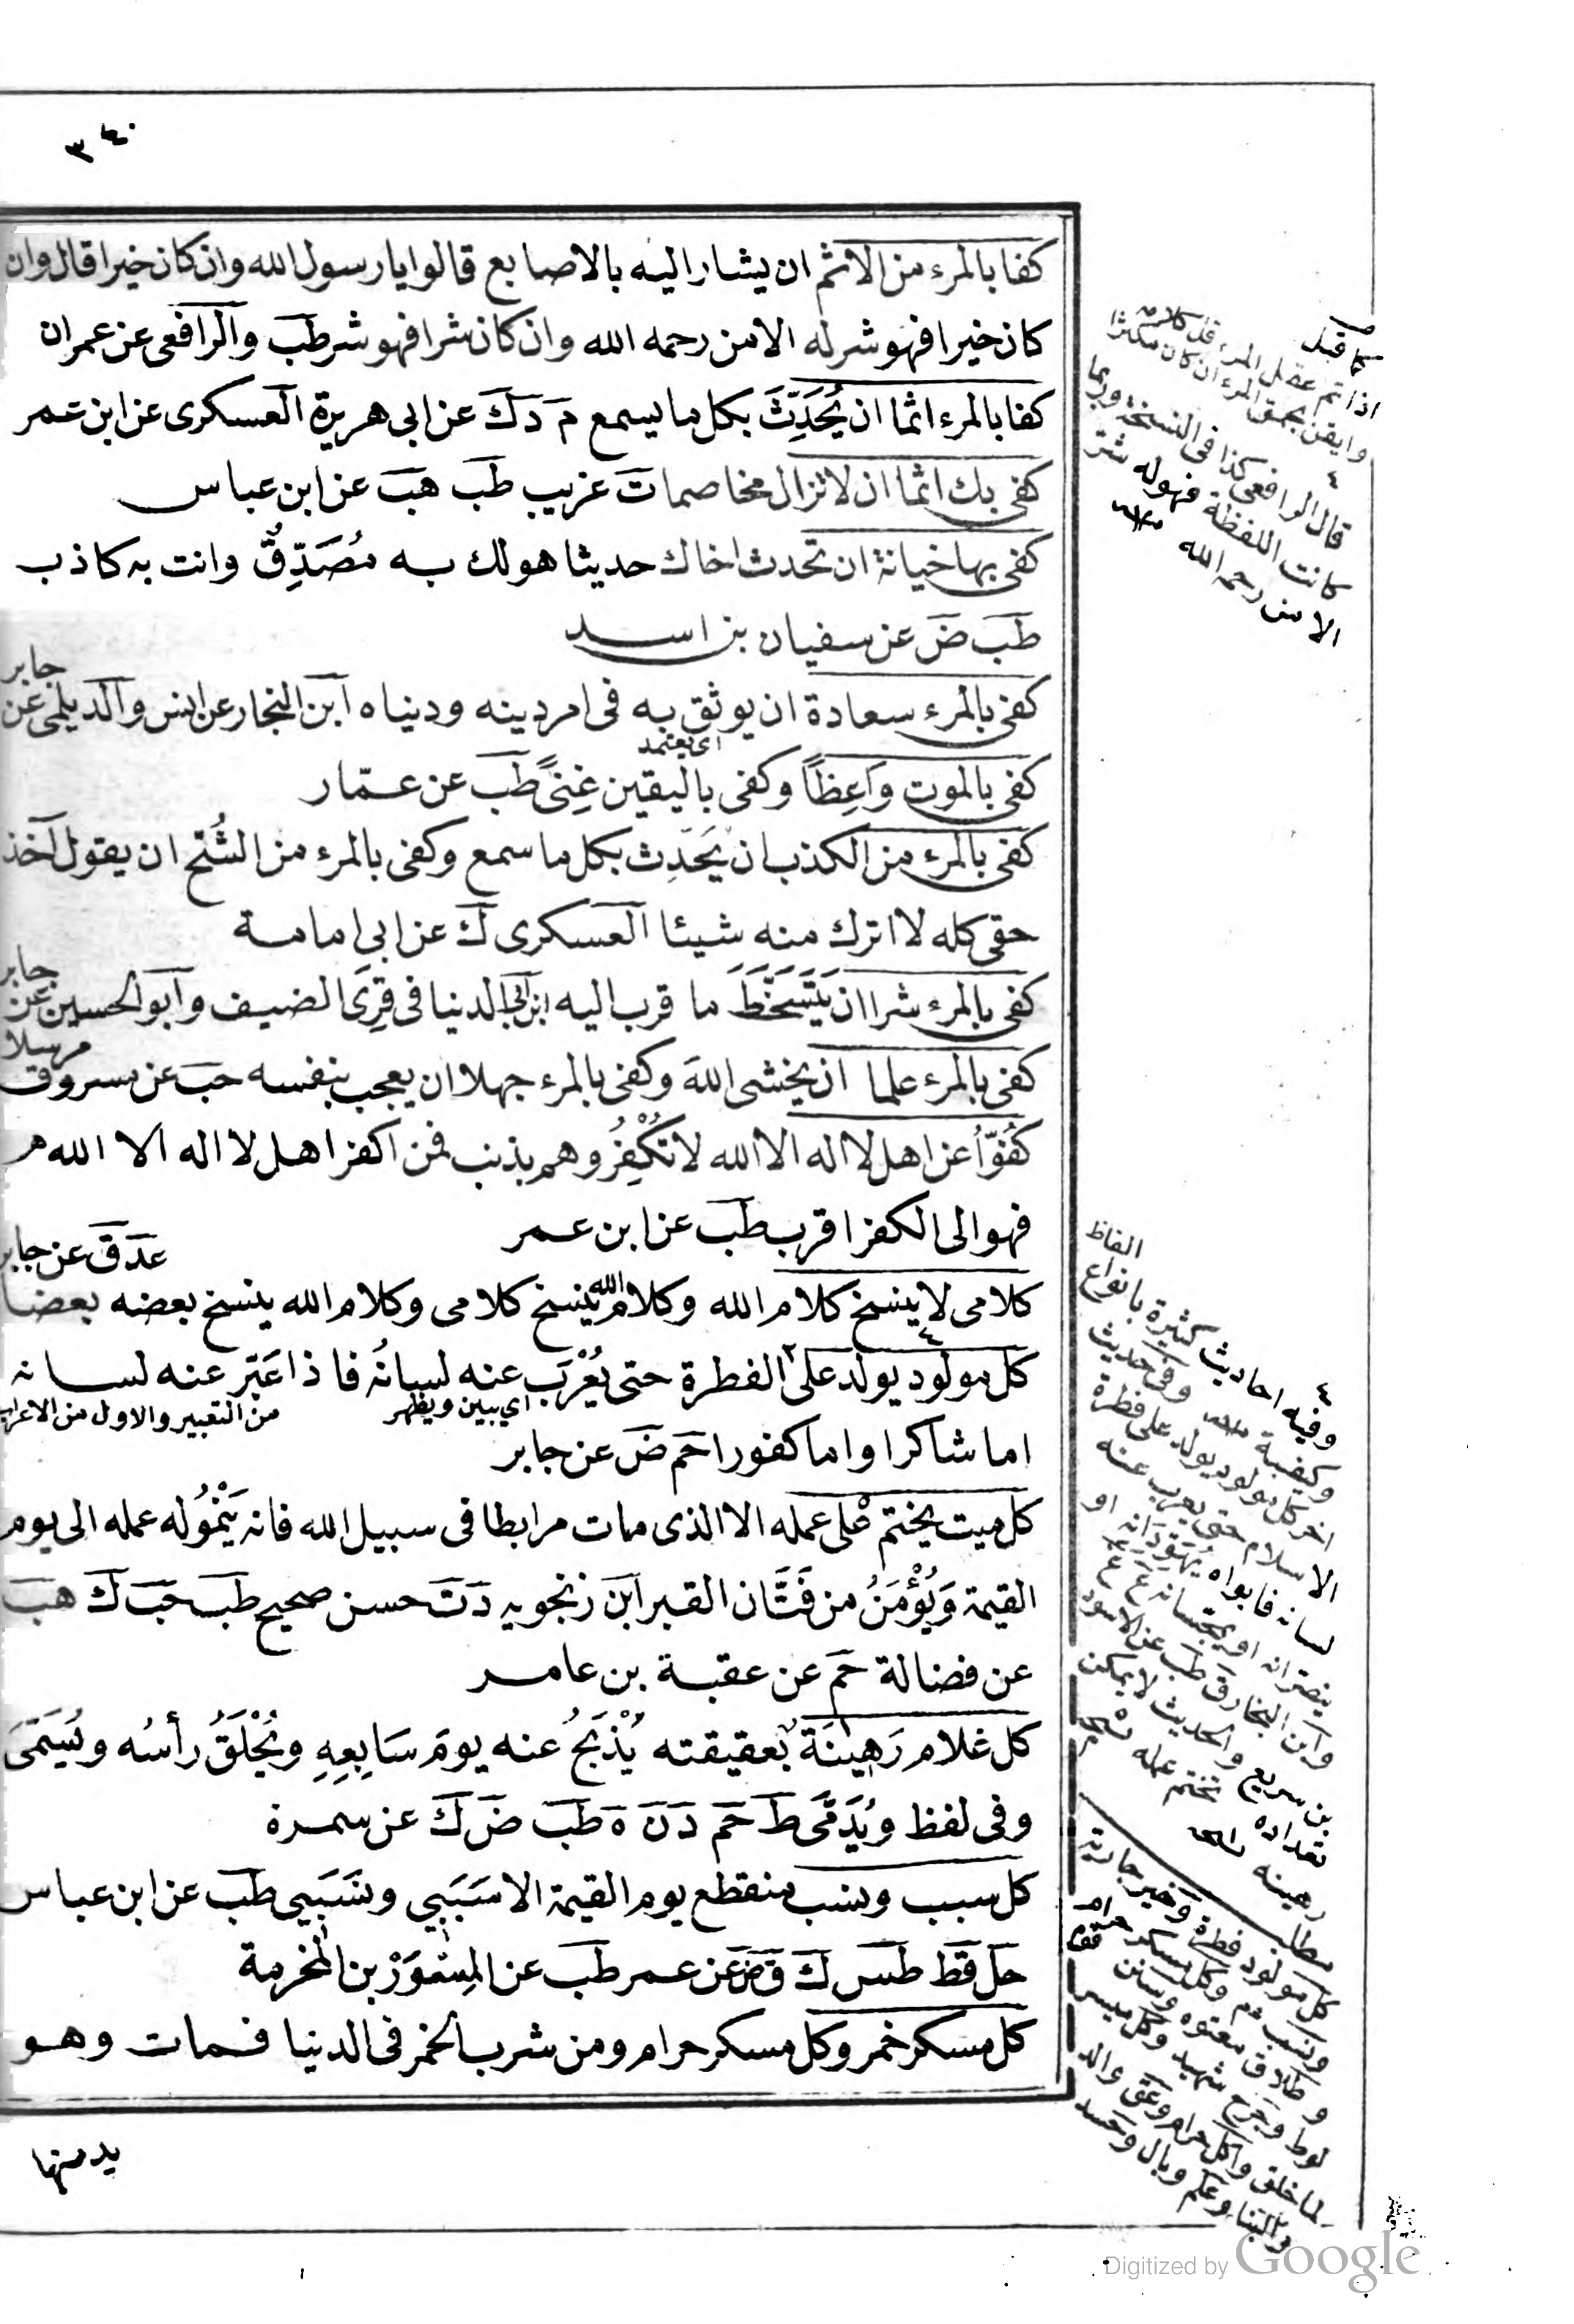 ٣٤٠
كفا بالمرء من الاثم ان يشار اليه بالاصابع قالوا يا رسول الله وان كان خيرا قال وان
كان خيرا فهو شر له الا من رحمه الله وان كان شرا فهو شر طب والرافعى عن عمران
كفا بالمرء اثما ان يُحَدِّثَ بكل ما يسمع م د ك عن ابى هريرة العسكرى عن ابن عمر
كفى بك اثما ان لا تزال مخاصما ت غريب طب هب عن ابن عباس
كفى بها خيانة ان تحدث اخاك حديثا هو لك به مُصَدِّقٌ وانت به كاذب
طب ض عن سفيان بن اسد
كفى بالمرء سعادة ان يوثق به فى امر دينه ودنياه ابن النجار عن انس والديلمى عن جابر
اى يعتمد
كفى بالموت وَاعِظاً وكفى باليقين غِنىً طب عن عمّار
كفى بالمرء من الكذب ان يُحَدِث بكل ما سمع وكفى بالمرء من الشُح ان يقول آخذ
حقى كله لا اترك منه شيئا العسكرى ك عن ابى امامة
كفى بالمرء شرا ان يَتَسَخَّطَ ما قرب اليه ابن ابى الدنيا فى قِرَى الضيف وابو الحسين عن جابر
كفى بالمرء علما ان يخشى الله وكفى بالمرء جهلا ان يعجب بنفسه حب عن مسروق مرسلا
كُفّوُا عن اهل لا اله الا الله لا تُكْفِرُوهم بذنب فمن اكفر اهل لا اله الا الله
فهو الى الكفر اقرب طب عن ابن عمر
عد ق عن جابر
كلامى لا ينسخ كلام الله وكلام الله ينسخ كلامى وكلام الله ينسخ بعضه بعضا
كل مولود يولد على الفطرة حتى يُعْرَبَ عنه لسانُه فاذا عَبّر عنه لسانه
اى يبين ويظهر
من التعبير والاول من الاعراب
اما شاكرا واما كفورا حم ض عن جابر
كل ميت يختم على عمله الا الذى مات مرابطا فى سبيل الله فانه يَنْمُو له عمله الى يوم
القيمة وَيُؤْمَنُ من فَتَّان القبر ابن زنجويه د ت حسن صحيح طب حب ك هب
عن فضالة حم عن عقبة بن عامر
كل غلام رَهِينَة بعقيقته يُذْبَحُ عنه يومَ سَابِعِهِ ويُحْلَقُ رأسُه ويُسَمّىَ
وفى لفظ ويُدَمَّى ط حم د ن ه طب ض ك عن سمرة
كل سبب ونسب منقطع يوم القيمة الا سَبَبِي ونَسَبِي طب عن ابن عباس
حل قط طس ك ق ض عن عمر طب عن المِسْوَرْ بن المخرمة
كل مسكر خمر وكل مسكر حرام ومن شرب الخمر فى الدنيا فمات وهو
يدمنها
كما قيل
اذا تم عقل المرء قل كلامه
وايقن بحمق المرء ان كان مكثرا
٤
قال الرافعى كذا فى النسخة وربما
كانت اللفظة فهو له شر
الا من رحمه الله
الفاظ
٤
وفيه احاديث كثيرة بانواع
وكيفية وفى حديث
اخر كل مولود يولد على فطرة
الاسلام حتى يعرب عنه
لسانه فابواه يُهَوِدَانِه او
ينصرانه او يمجسانه ع
وابن البخارق طب عن الاسود
بن سريع والحديث لا يمكن
تعداده
رهينه
مطلب
كل مولود فطرة
ونسب وكل مسكر حرام
وطلاق معتوه
لوط وجرح شهيد وكل ميسر
لما خلق واكل حرام وعق والد
والبناء وعلم وبال وحسد
Digitized by Google